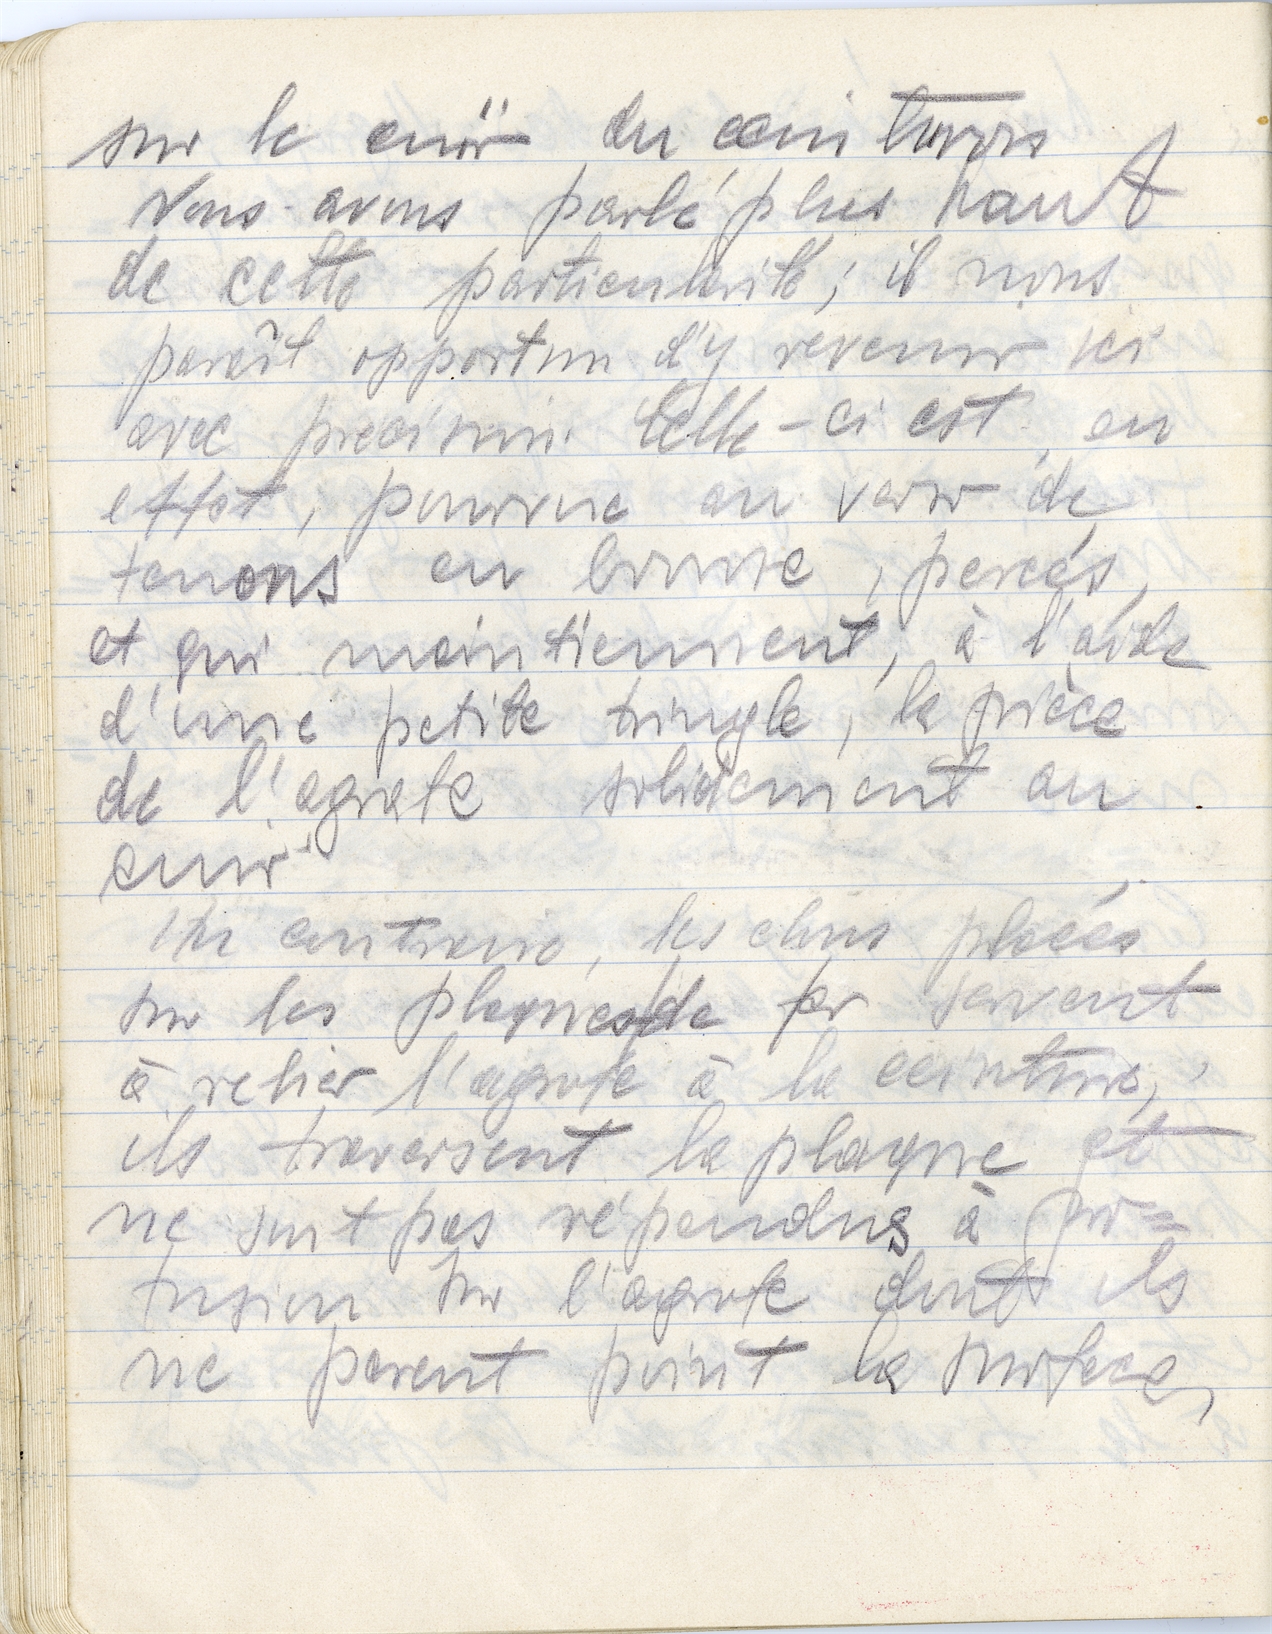 sur le cuir du ceinturon
Nous avons parlé plus haut
de cette particularité ; il nous
paraît opportun d'y revenir ici
avec précision. Celle-ci est, en
effet, pourvue au verso de
tenons en bronze, percés,
et qui maintiennent, à l'aide
d'une petite tringle, la pièce
de l'agrafe solidement au
cuir.
Au contraire, les clous placés
sur les plaques de fer servent
à relier l'agrafe à la ceinture,
ils traversent la plaque et
ne sont pas répandus à pro=
fusion sur l'agrafe dont ils
ne parent point la surface,